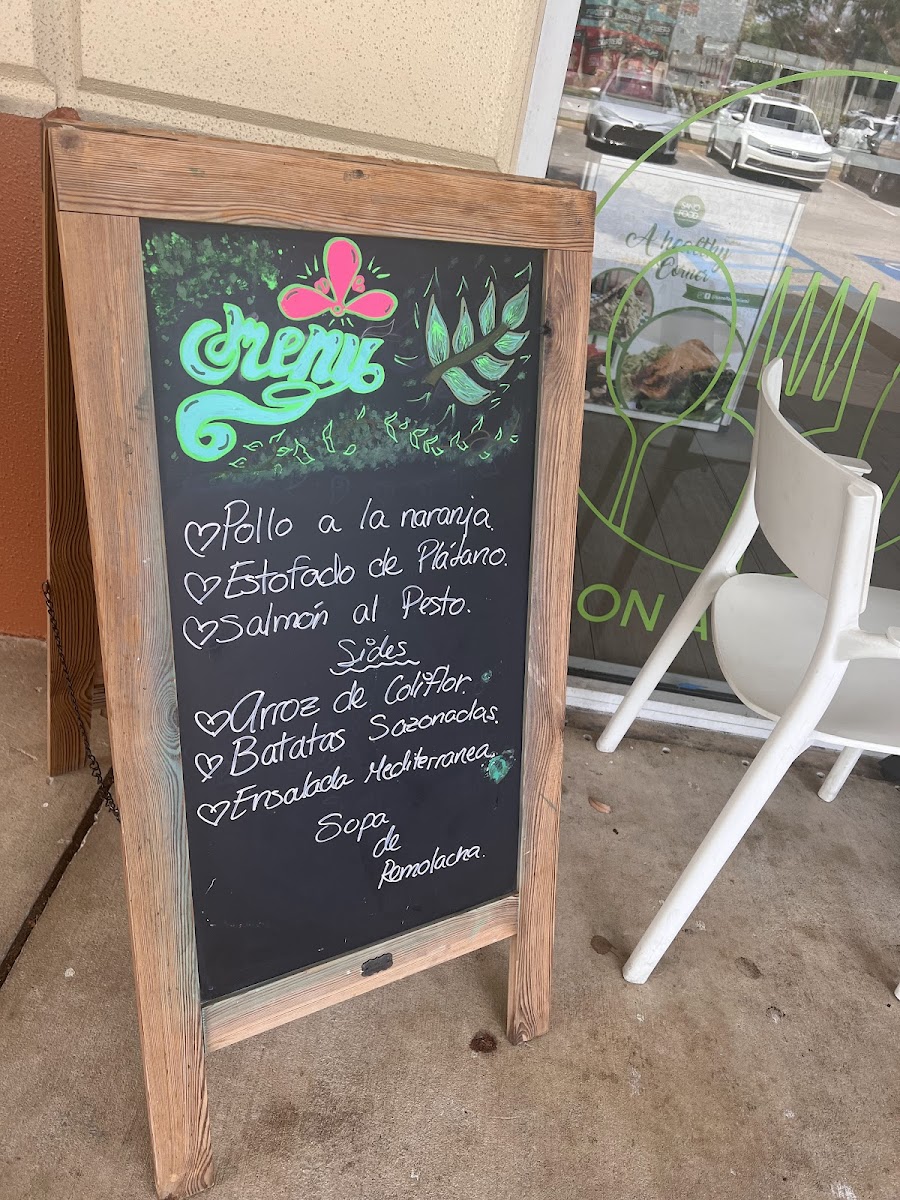 menu
Pollo a la naranja.
Estofado de Plátano.
Salmón al Pesto.
Sides
Arroz de Coliflor.
Batatas Sazonadas.
Ensalada Mediterranea.
Sopa
de
Remolacha.
SANO
FOOD
A healthy
Corner
ON A